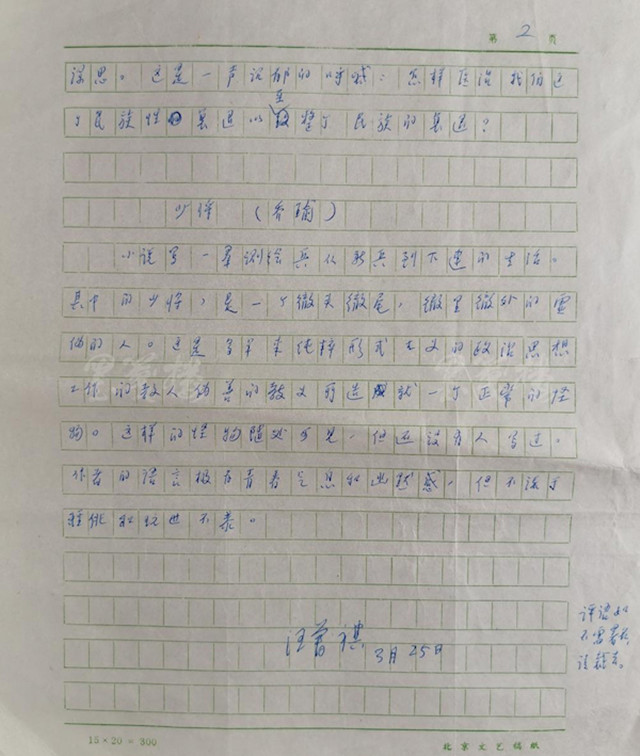 第 2 页
深思。这是一声沉郁的呼喊:怎样医治我们这
至
个民族性衰退以整个民族的衰退?
少将 (乔瑜)
小说写一群测绘兵从新兵到下连的生活。
其中的少将,是一个彻头彻尾,彻里彻外的虚
伪的人。这是多年来纯粹形式主义的政治思想
工作的教人伪善的教义所造就一个正常的怪
物。这样的怪物随处可见,但还没有人写过。
作者的语言极有青春气息和幽默感,但不流于
轻佻和玩世不恭。
汪曾祺
3月25日
评语如
不需署名,
请去。
15×20=300
北京文艺稿纸